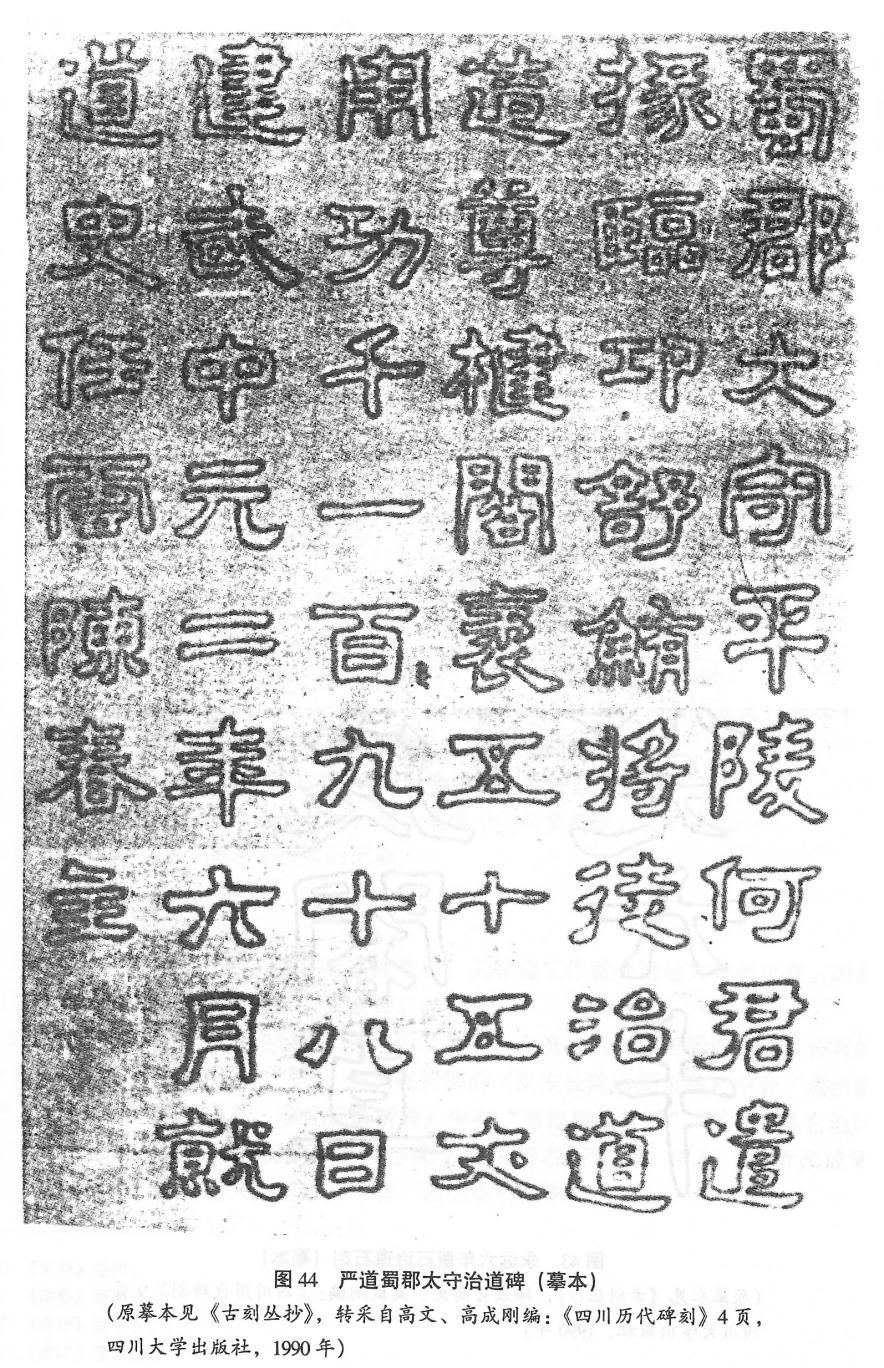 蜀郡大守平陵何君遣
掾臨邛舒鮪將徒治道
造尊楗閣袤五十五丈
用功千一百九十八日
建武中元二年六月就
道史任雲陳春主
图44 严道蜀郡太守治道碑（摹本）
（原摹本见《古刻丛抄》，转采自高文、高成刚编：《四川历代碑刻》4页，
四川大学出版社，1990年）